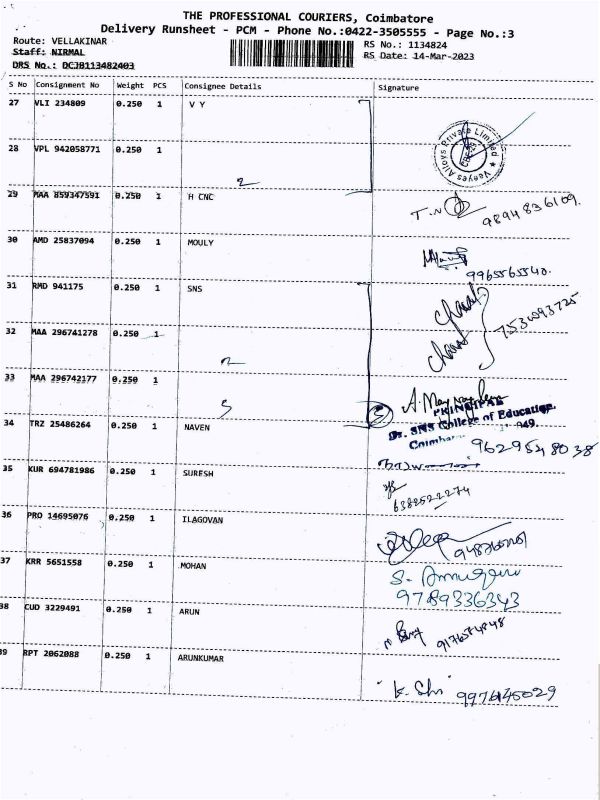 THE PROFESSIONAL COURIERS, Coimbatore
Delivery Runsheet - PCM - Phone No.:0422-3505555 - Page No.:3
Route: VELLAKINAR
RS No.: 1134824
Staff: NIRMAL
RS Date: 14-Mar-2023
DRS No.: DCJB113482403
S No Consignment No Weight PCS Consignee Details Signature
27 VLI 234809 0.250 1 V Y
Veeyes Alloys Private Limited
28 VPL 942058771 0.250 1
29 MAA 859347591 0.250 1 H CNC
T.N 9894836109.
30 AMD 25837094 0.250 1 MOULY
9965565540.
31 RMD 941175 0.250 1 SNS
32 MAA 296741278 0.250 1
33 MAA 296742177 0.250 1
3
PRINCIPAL
Dr. SNS College of Education
34 TRZ 25486264 0.250 1 NAVEN
9629548038
35 KUR 694781986 0.250 1 SURESH
6382522274
36 PRO 14695076 0.250 1 ILAGOVAN
37 KRR 5651558 0.250 1 MOHAN
9789336343
38 CUD 3229491 0.250 1 ARUN
39 RPT 2062088 0.250 1 ARUNKUMAR
9976145029